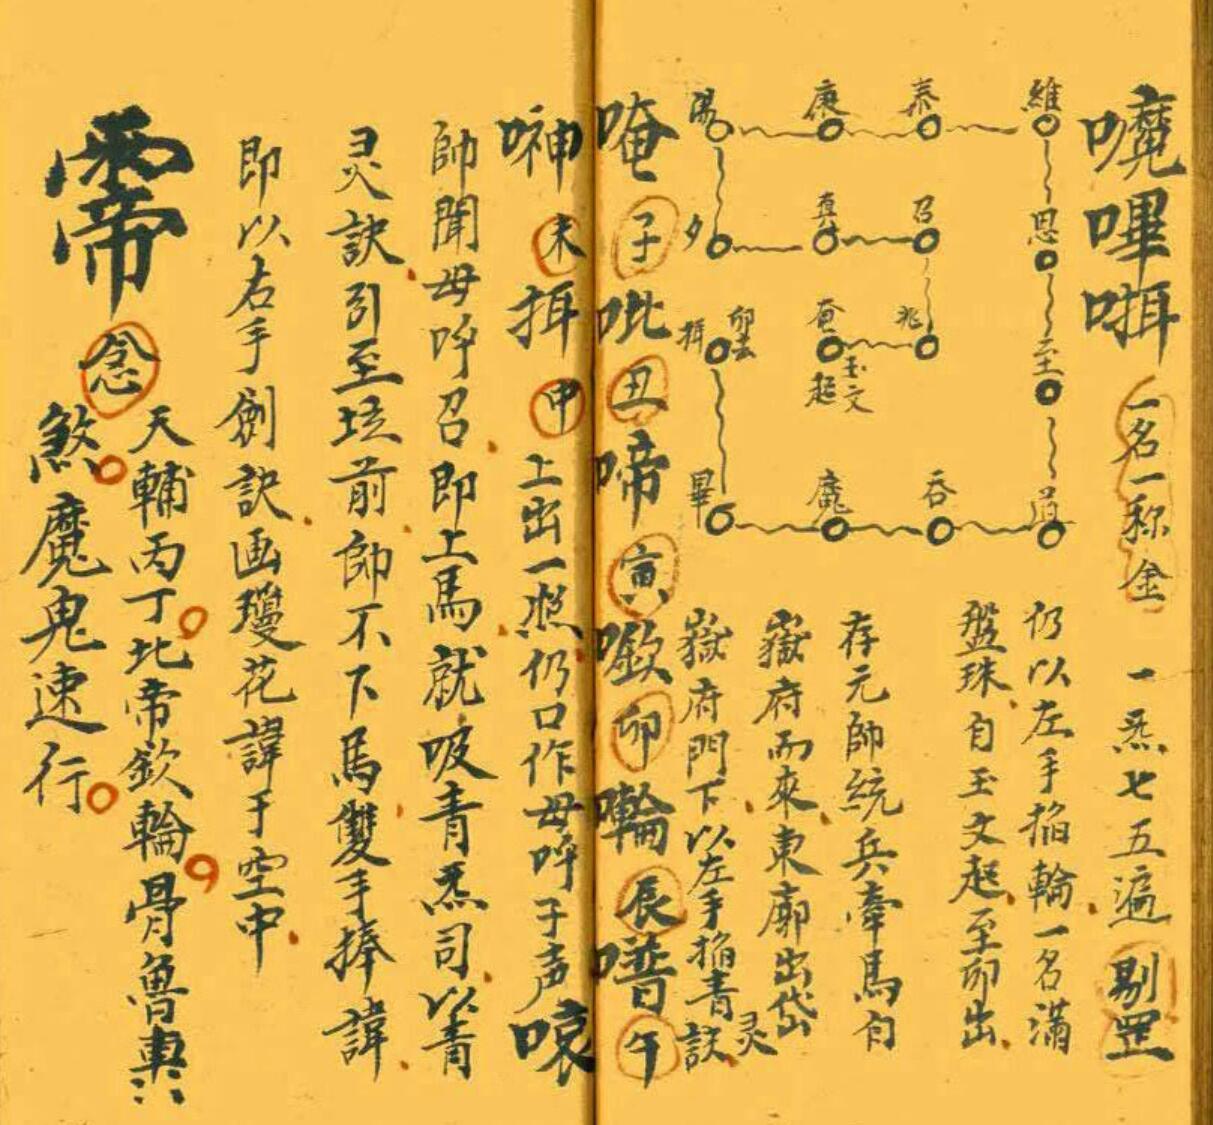 嚤嗶㖇 一名一称金 一炁七五遍 剔罡
仍以左手掐輪一名滿
盤珠自玉文起至卯出
維 泰 康 湯
恩 召 真 夕
至 兆 奋 揖 卯去
玉文起
道 吞 魔 畢
存元帥統兵牽馬自
嶽府而來東廓出岱
嶽府門下以左手掐青灵訣
唵 子 吡 丑 啼 寅 㘓 卯 輪 辰 噆 午
䄅 未 揖 申 上出一照仍口作母呼子声 哀
帥聞母呼召即上馬就吸青炁司以青
灵訣引至坛前帥不下馬雙手捧諱
即以右手劍訣画瓊花諱于空中
念 天輔丙丁北帝欽輪骨魯輿
煞魔鬼速行